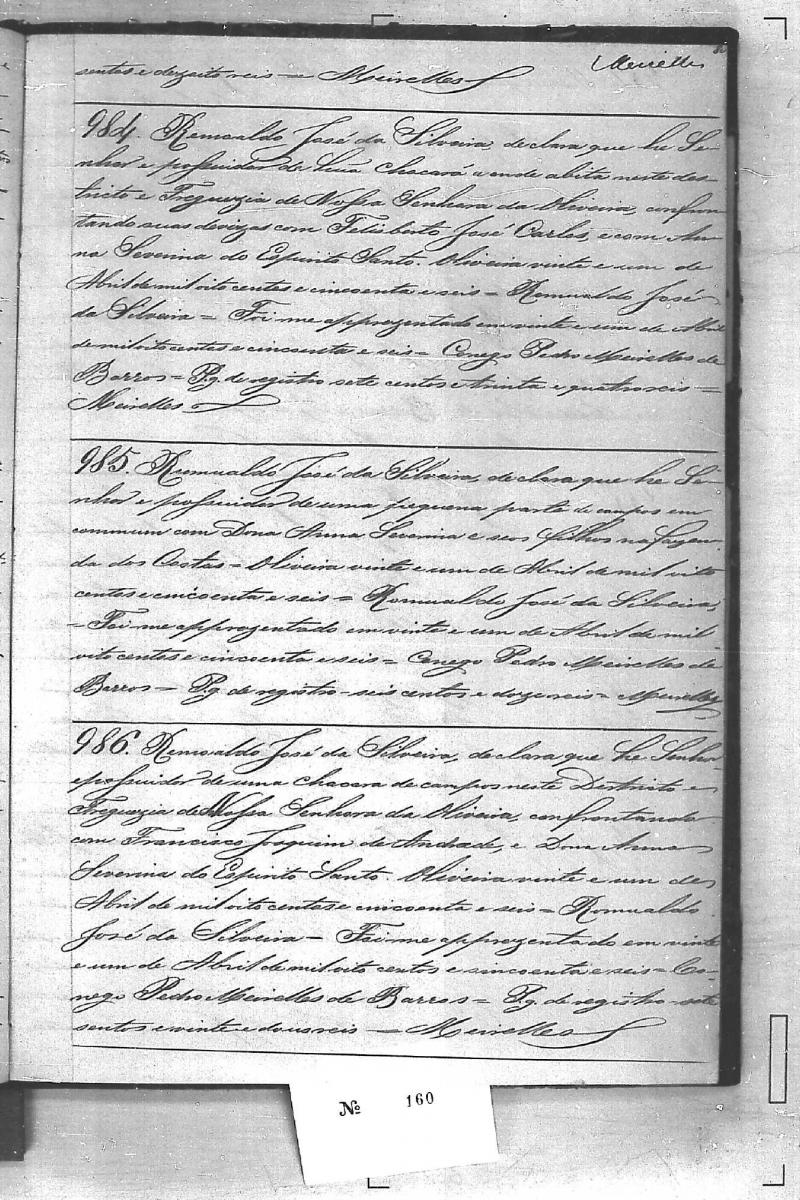 Meirelles
sentos e dezoito reis = Meirelles
984. Romoaldo José da Silveira, declara que he Se-
nhor e possuidor da sua chacará a onde abita neste des-
tricto e Freguezia de Nossa Senhora da Oliveira, confron
tando suas devizas com Felisberto José Carlos, e com An
na Severina do Espirito Santo. Oliveira vinte e um de
Abril de mil oito centos e cincoenta e seis = Romualdo José
da Silveira = Foi me apprezentado em vinte e um de Abril
de mil oito centos e cincoenta e seis = Conego Pedro Meirelles de
Barros = Pg. de registro sete centos e trinta e quatro reis =
Meirelles
985. Rumualdo José da Silveira, declara que he Se-
nhor e possuidor de uma pequena parte de campos em
commum com Dona Anna Severina e seos filhos na fazen
da dos Costas = Oliveira vinte e um de Abril de mil oito
centos e cincoenta e seis = Romualdo José da Silveira,
= Foi me apprezentado em vinte e um de Abril de mil
oito centos e cincoenta e seis = Conego Pedro Meirelles de
Barros = Pg. de registro = seis centos e doze reis = Meirelles
986. Romoaldo José da Silveira, declara que he Senhor
e possuidor de uma chacara de campos neste Destricto e
Freguezia de Nossa Senhora da Oliveira, confrontando
com Francisco Joaquim de Andrade, e Dona Anna
Severina do Espirito Santo. Oliveira vinte e um de
Abril de mil oito centos e cincoenta e seis = Romualdo
José da Silveira = Foi me apprezentado em vinte
e um de Abril de mil oito centos e sincoenta e seis = Co-
nego Pedro Meirelles de Barros = Pg. de registro = sete
sentos e vinte e dous reis = Meirelles
Nº 160